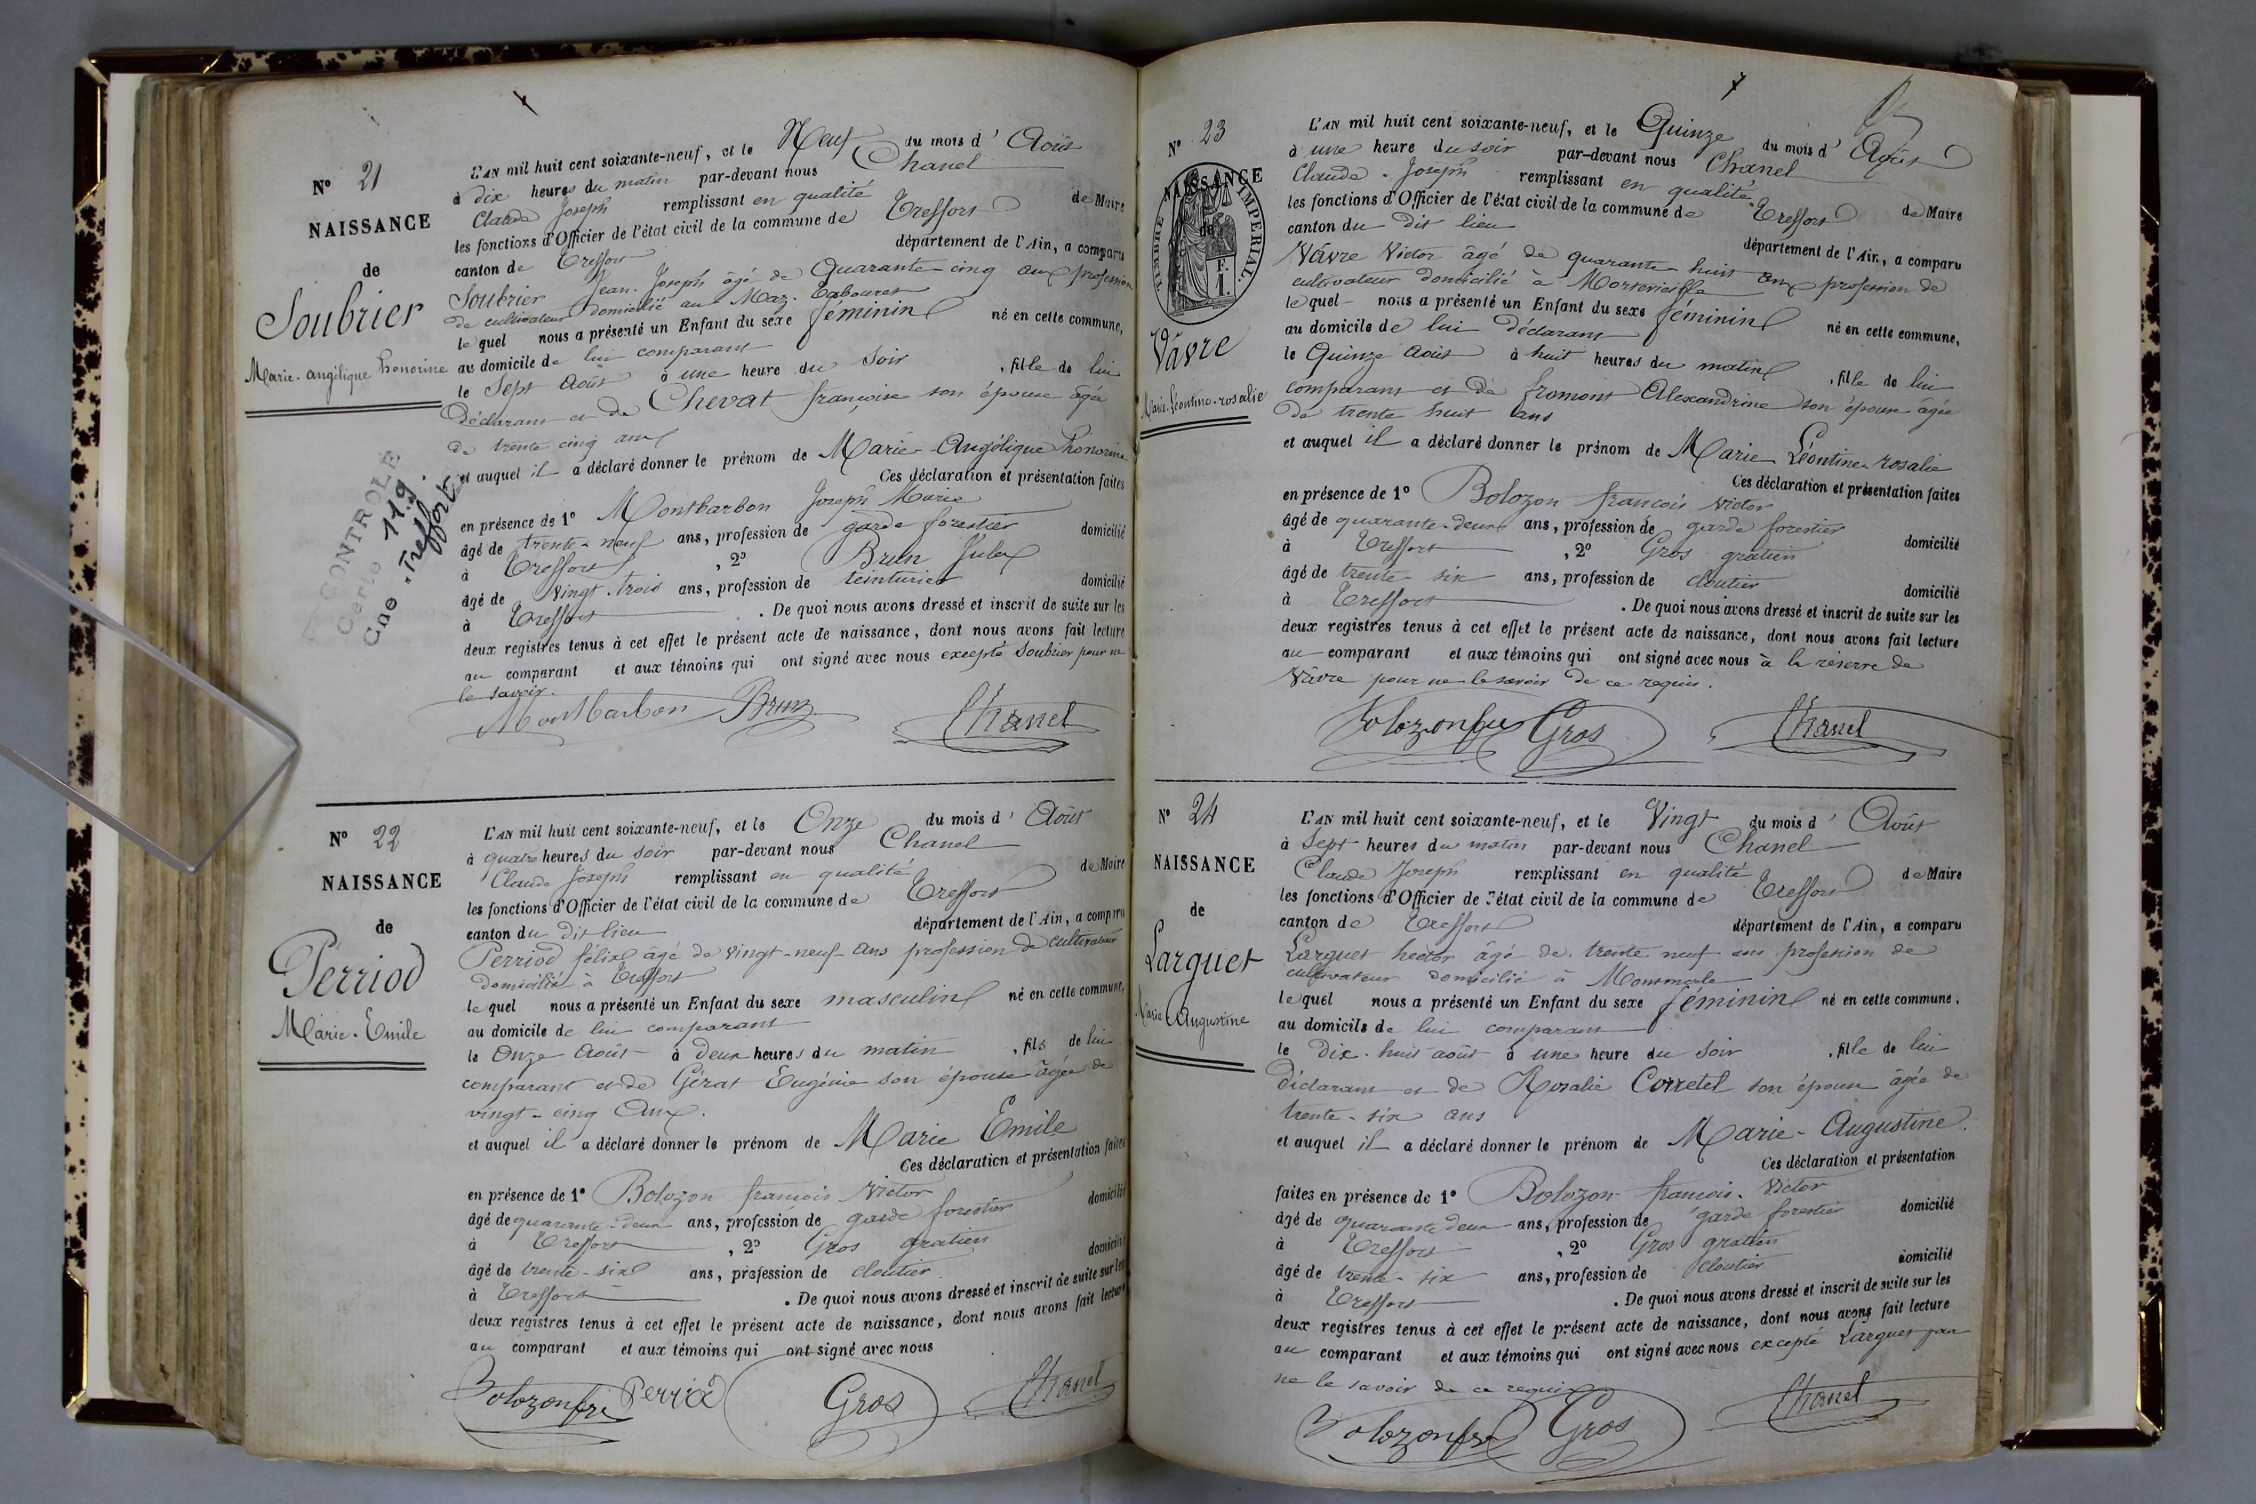 N° 21
NAISSANCE
de
Soubrier
Marie-Angélique honorine
CONTROLE
Carte 119.
Cne. Treffort
L'AN mil huit cent soixante-neuf, et le Neuf du mois d' Août
à dix heures du matin par-devant nous Chanel
Claude Joseph remplissant en qualité de Maire
les fonctions d'Officier de l'état civil de la commune de Treffort
canton de Treffort département de l'Ain, a comparu
Soubrier Jean-Joseph âgé de Quarante-cinq ans profession
de cultivateur domicilié au Maz-
le quel nous a présenté un Enfant du sexe féminin né en cette commune,
au domicile de lui comparant
le Sept Août à une heure du Soir , fille de lui
Déclarant et de Chevat françoise son épouse âgée
de trente cinq ans
et auquel il a déclaré donner le prénom de Marie-Angélique honorine
Ces déclaration et présentation faites
en présence de 1° Montbarbon Joseph Marie
âgé de trente-neuf ans, profession de garde forestier domicilié
à Treffort , 2° Brun Jules
âgé de vingt-trois ans, profession de teinturier domicilié
à Treffort . De quoi nous avons dressé et inscrit de suite sur les
deux registres tenus à cet effet le présent acte de naissance, dont nous avons fait lecture
au comparant et aux témoins qui ont signé avec nous excepté Soubrier pour ne
le savoir.
Montbarbon Brun Chanel
N° 22
NAISSANCE
de
Perriod
Marie-Emile
L'AN mil huit cent soixante-neuf, et le Onze du mois d' Août
à quatre heures du soir par-devant nous Chanel
Claude Joseph remplissant en qualité de Maire
les fonctions d'Officier de l'état civil de la commune de Treffort
canton du dit lieu département de l'Ain, a comparu
Perriod félix âgé de vingt-neuf ans profession de cultivateur
domicilié à Treffort
le quel nous a présenté un Enfant du sexe masculin né en cette commune,
au domicile de lui comparant
le Onze Août à deux heures du matin , fils de lui
comparant et de Gérat Eugénie son épouse âgée de
vingt-cinq ans.
et auquel il a déclaré donner le prénom de Marie Emile
Ces déclaration et présentation faites
en présence de 1° Bolozon françois Victor
âgé de quarante-deux ans, profession de garde forestier domicilié
à Treffort , 2° Gros gratien
âgé de trente-six ans, profession de cloutier domicilié
à Treffort . De quoi nous avons dressé et inscrit de suite sur les
deux registres tenus à cet effet le présent acte de naissance, dont nous avons fait lecture
au comparant et aux témoins qui ont signé avec nous
Bolozon Perriod Gros Chanel
N° 23
NAISSANCE
de
TIMBRE IMPERIAL.
F.
1.
Vâvre
Marie-Léontine-rosalie
L'AN mil huit cent soixante-neuf, et le Quinze du mois d' Août
à une heure du soir par-devant nous Chanel
Claude-Joseph remplissant en qualité de Maire
les fonctions d'Officier de l'état civil de la commune de Treffort
canton du dit lieu département de l'Ain, a comparu
Vâvre Victor âgé de quarante-huit ans profession de
cultivateur domicilié à
le quel nous a présenté un Enfant du sexe féminin né en cette commune,
au domicile de lui déclarant
le Quinze Août à huit heures du matin , fille de lui
comparant et de fromont Alexandrine son épouse âgée
de trente huit ans
et auquel il a déclaré donner le prénom de Marie Léontine-rosalie
Ces déclaration et présentation faites
en présence de 1° Bolozon françois Victor
âgé de quarante-deux ans, profession de garde forestier domicilié
à Treffort , 2° Gros gratien
âgé de trente-six ans, profession de cloutier domicilié
à Treffort . De quoi nous avons dressé et inscrit de suite sur les
deux registres tenus à cet effet le présent acte de naissance, dont nous avons fait lecture
au comparant et aux témoins qui ont signé avec nous à la réserve de
Vâvre pour ne le savoir de ce requis.
Bolozon Gros Chanel
N° 24
NAISSANCE
de
Larguet
Marie Augustine
L'AN mil huit cent soixante-neuf, et le Vingt du mois d' Août
à Sept heures du matin par-devant nous Chanel
Claude Joseph remplissant en qualité de Maire
les fonctions d'Officier de l'état civil de la commune de Treffort
canton de Treffort département de l'Ain, a comparu
Larguet hector âgé de trente neuf ans profession de
cultivateur domicilié à
le quel nous a présenté un Enfant du sexe féminin né en cette commune,
au domicile de lui comparant
le Dix-huit août à une heure du Soir , fille de lui
déclarant et de Rosalie Corretel son épouse âgée de
trente-six ans
et auquel il a déclaré donner le prénom de Marie-Augustine.
Ces déclaration et présentation
faites en présence de 1° Bolozon françois-Victor
âgé de quarante deux ans, profession de garde forestier domicilié
à Treffort , 2° Gros gratien
âgé de trente-six ans, profession de cloutier domicilié
à Treffort . De quoi nous avons dressé et inscrit de suite sur les
deux registres tenus à cet effet le présent acte de naissance, dont nous avons fait lecture
au comparant et aux témoins qui ont signé avec nous excepté Larguet pour
ne le savoir de ce requis
Bolozon Gros Chanel